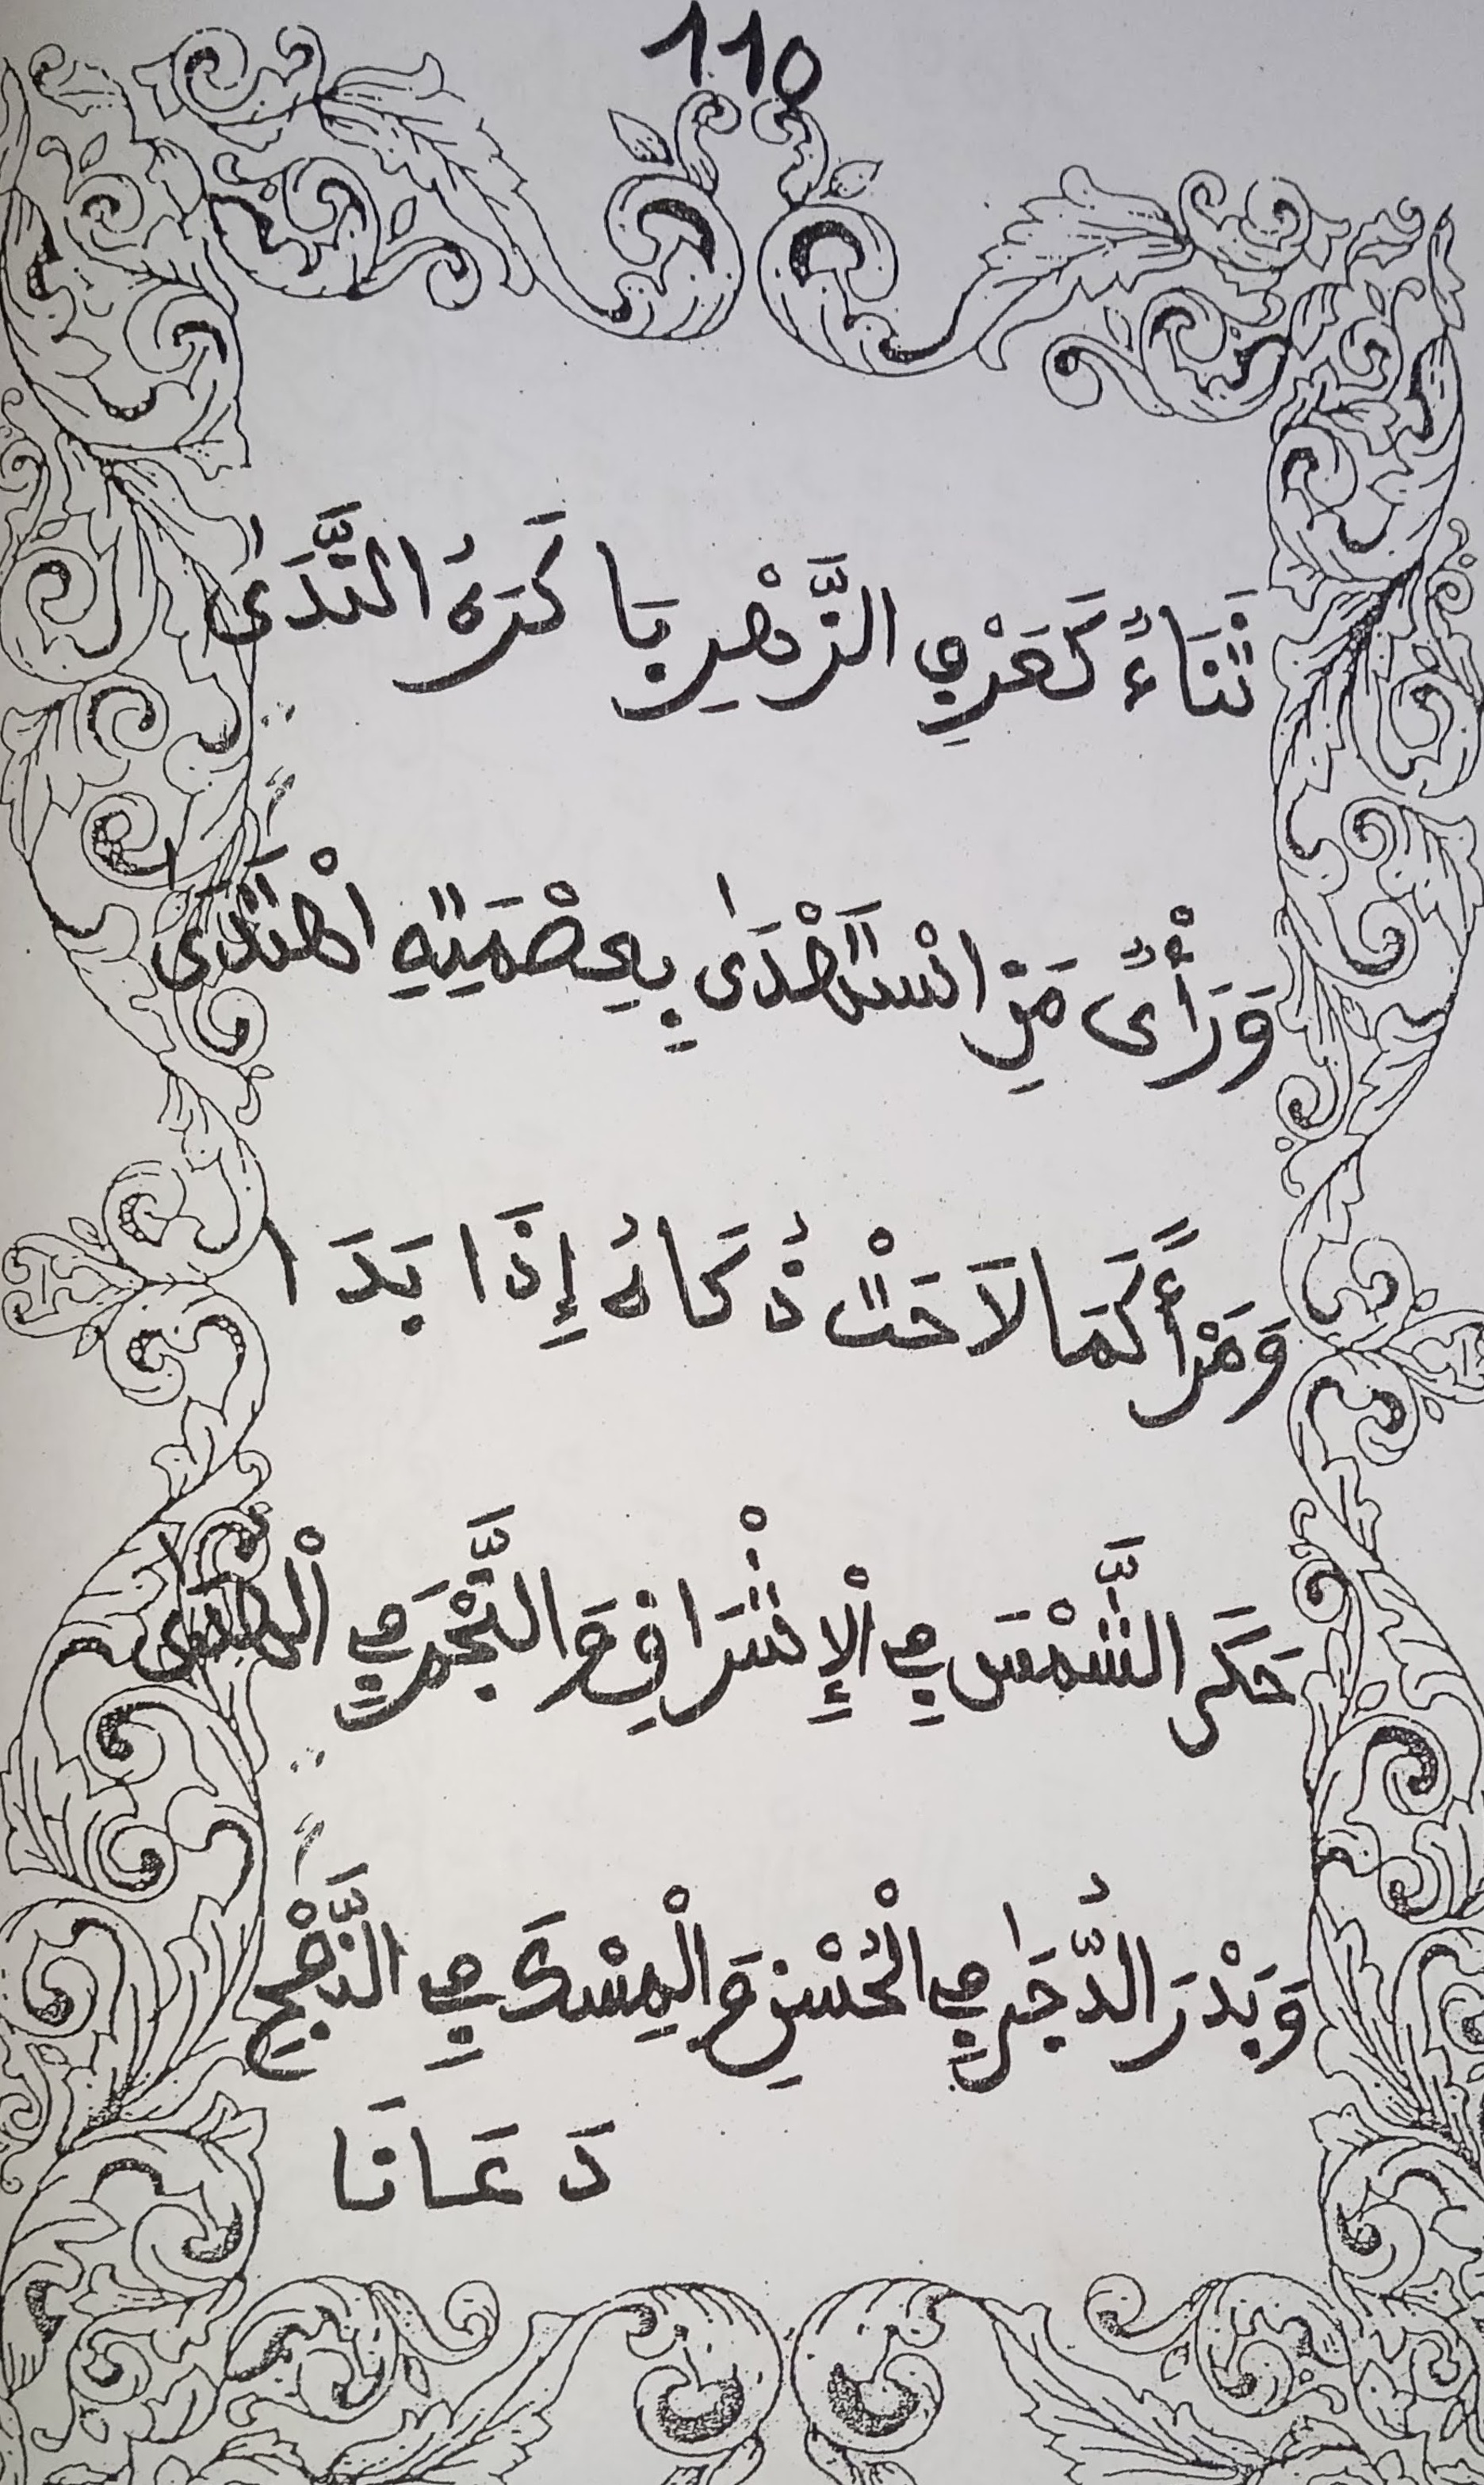 110
ثَنَاءٌ كَعَرْفِ الزَّهْرِ بَاكَرَهُ النَّدَى
وَرَأْيٌ مَنِ اسْتَهْدَى بِعِصْمَتِهِ اهْتَدَى
وَمَرْأً كَمَا لاَحَتْ ذُكَاءُ إِذَا بَدَا
حَكَى الشَّمْسَ فِي الْإِشْرَاقِ وَالنَّجْمَ فِي الْهُدَى
وَبَدْرَ الدُّجَى فِي الْحُسْنِ وَالْمِسْكَ فِي النَّفْحِ
دَعَانَا